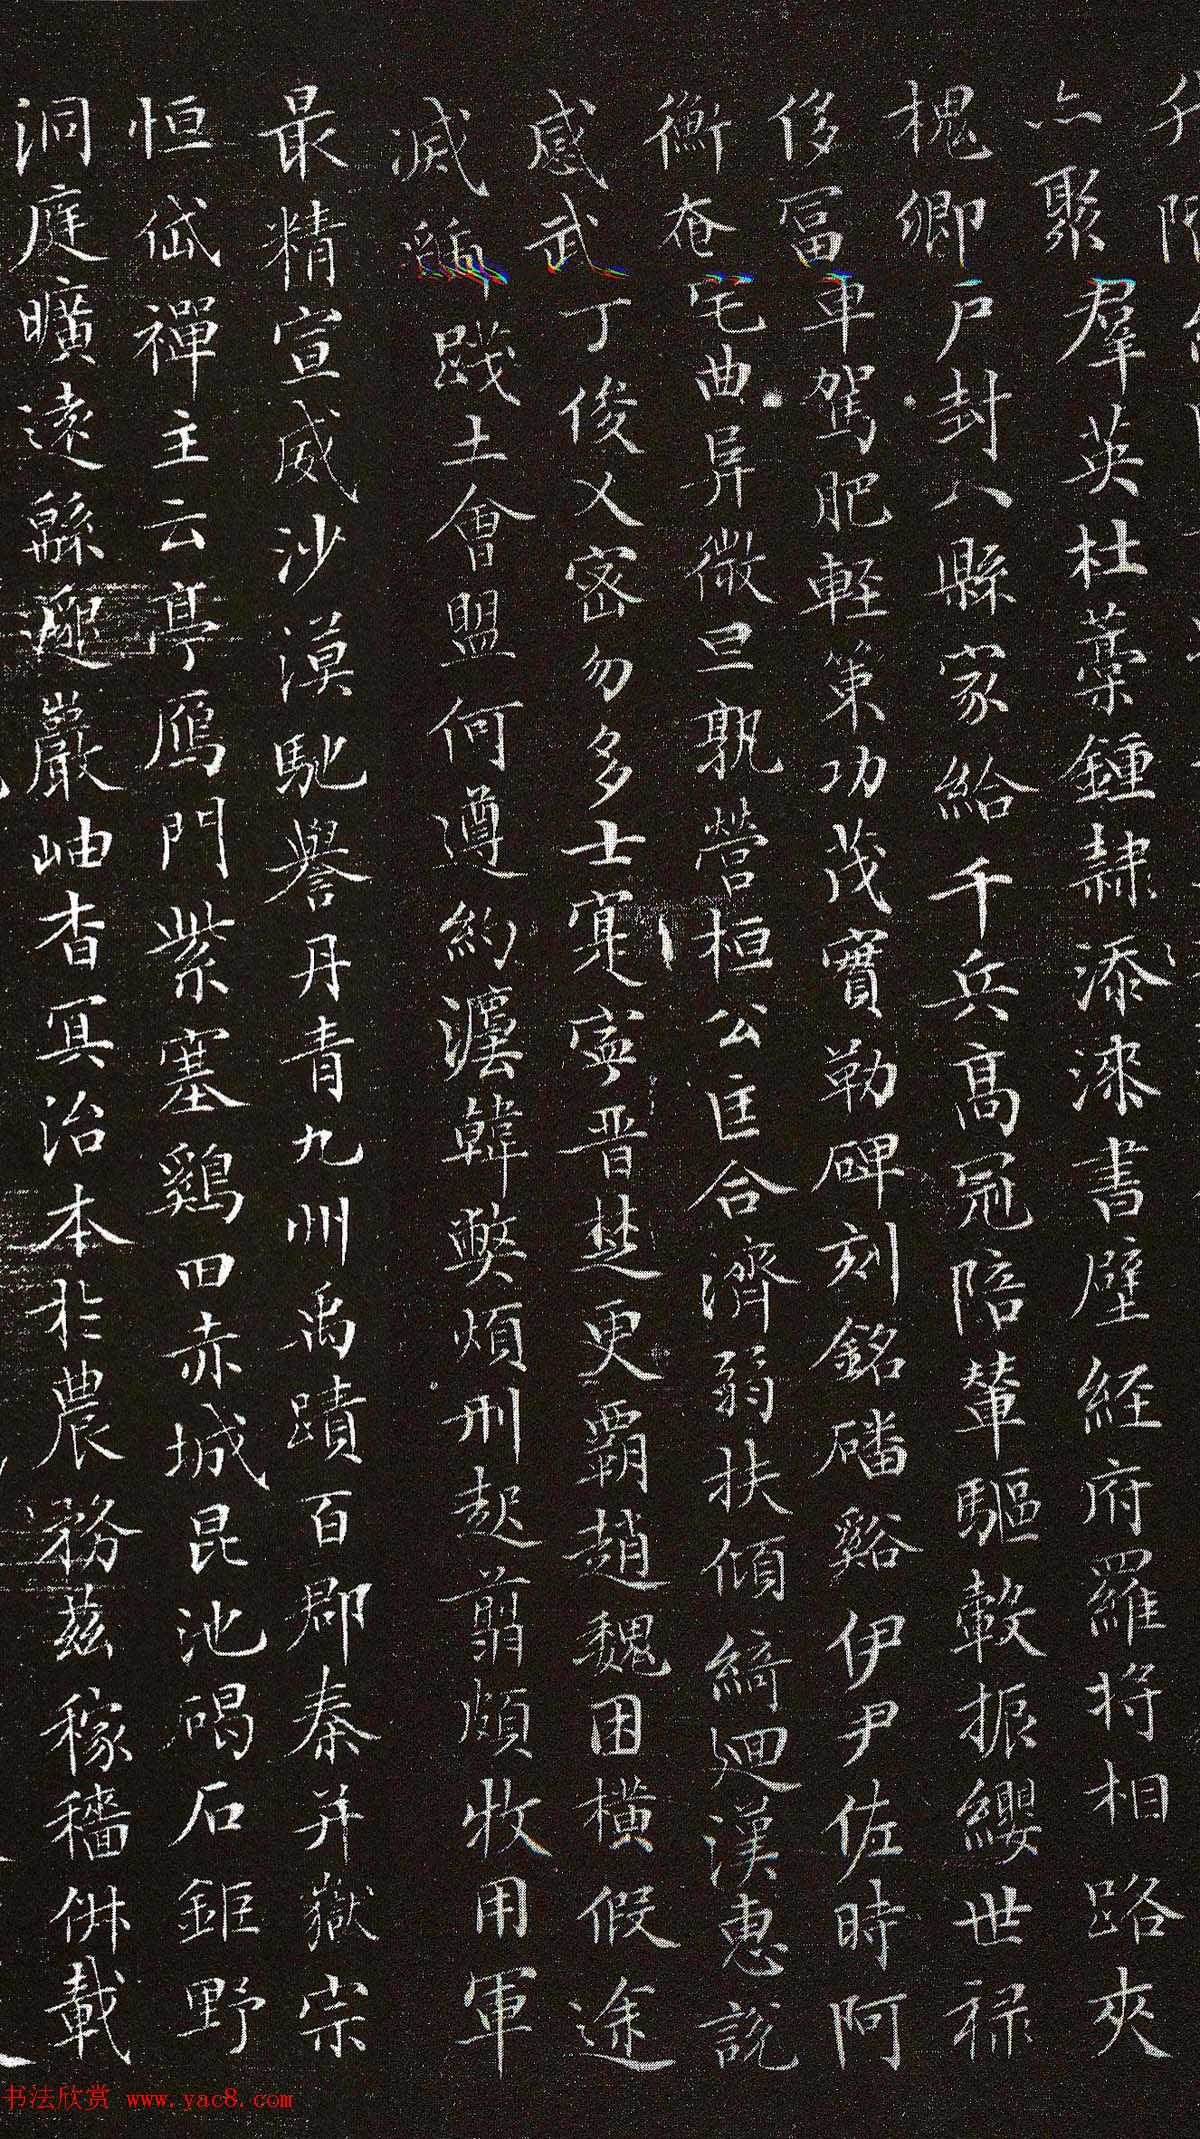 亦聚羣英杜藁鍾隸添漆書壁經府羅將相路夾
槐卿戶封八縣家給千兵高冠陪輦驅轂振纓世祿
侈冨車駕肥輕策功茂實勒碑刻銘磻谿伊尹佐時阿
衡奄宅曲阜微旦孰營桓公匡合濟弱扶傾綺迴漢惠說
感武丁俊乂密勿多士寔寧晉楚更霸趙魏困橫假途
滅虢踐土會盟何遵約灋韓弊煩刑起翦頗牧用軍
最精宣威沙漠馳譽丹青九州禹蹟百郡秦并嶽宗
恒岱禪主云亭鴈門紫塞鷄田赤城昆池碣石鉅野
洞庭曠遠緜邈巖岫杳冥治本於農務茲稼穡俶載
书法欣赏 www.yac8.com